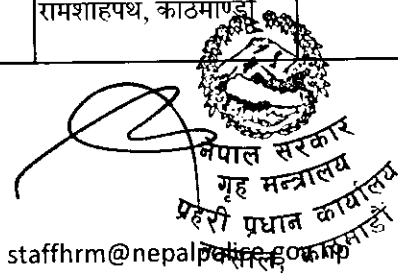 रामशाहपथ, काठमाण्डौ
नेपाल सरकार
गृह मन्त्रालय
प्रहरी प्रधान कार्यालय
नक्साल, काठमाडौं
staffhrm@nepalpolice.gov.np